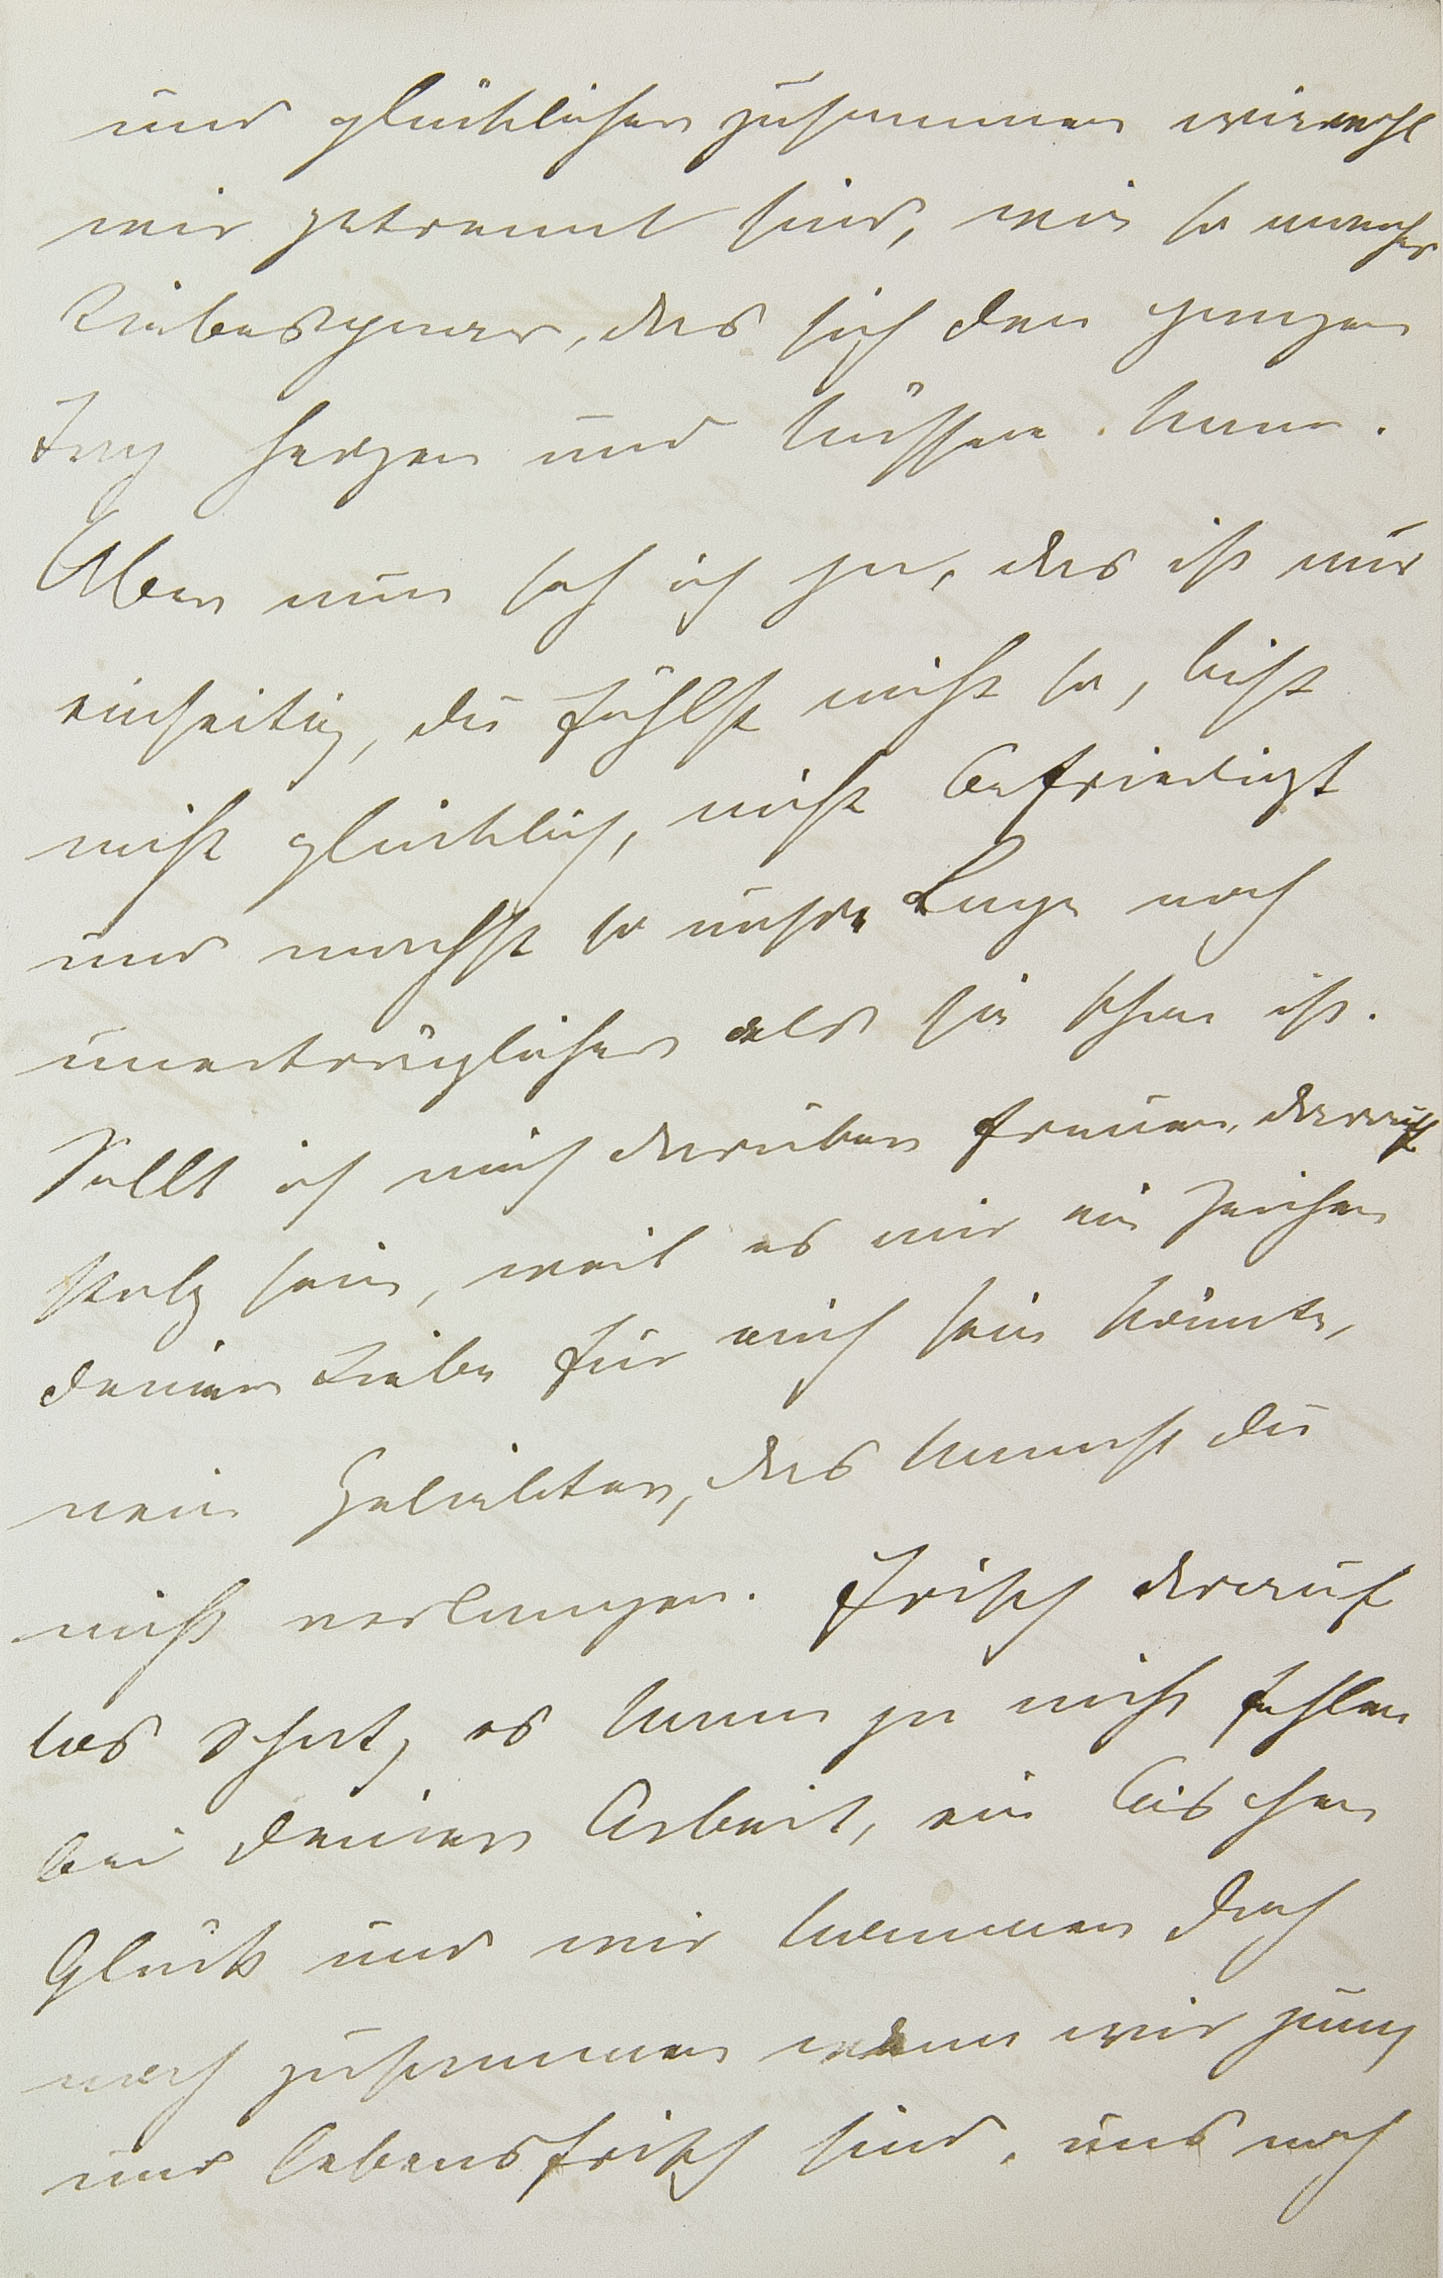 und glücklicher zusammen wiewohl
wir getrennt sind, wie so manches
Liebespaar, das sich den ganzen
Tag herzen und küssen kann.
Aber nun seh ich ja, das ist nur
einseitig, du fühlst nicht so, bist
nicht glücklich, nicht befriedigt
und machst so unsre Lage noch
unerträglicher als sie schon ist.
Sollt ich mich darüber freuen, darauf
stolz sein, weil es mir ein Zeichen
deiner Liebe für mich sein könnte,
nein Geliebter, das kannst du
nicht verlangen. Frisch darauf
los Schatz, es kann ja nicht fehlen
bei deiner Arbeit, ein bischen
Glück und wir kommen doch
noch zusammen wenn wir jung
und lebensfrisch sind, uns noch